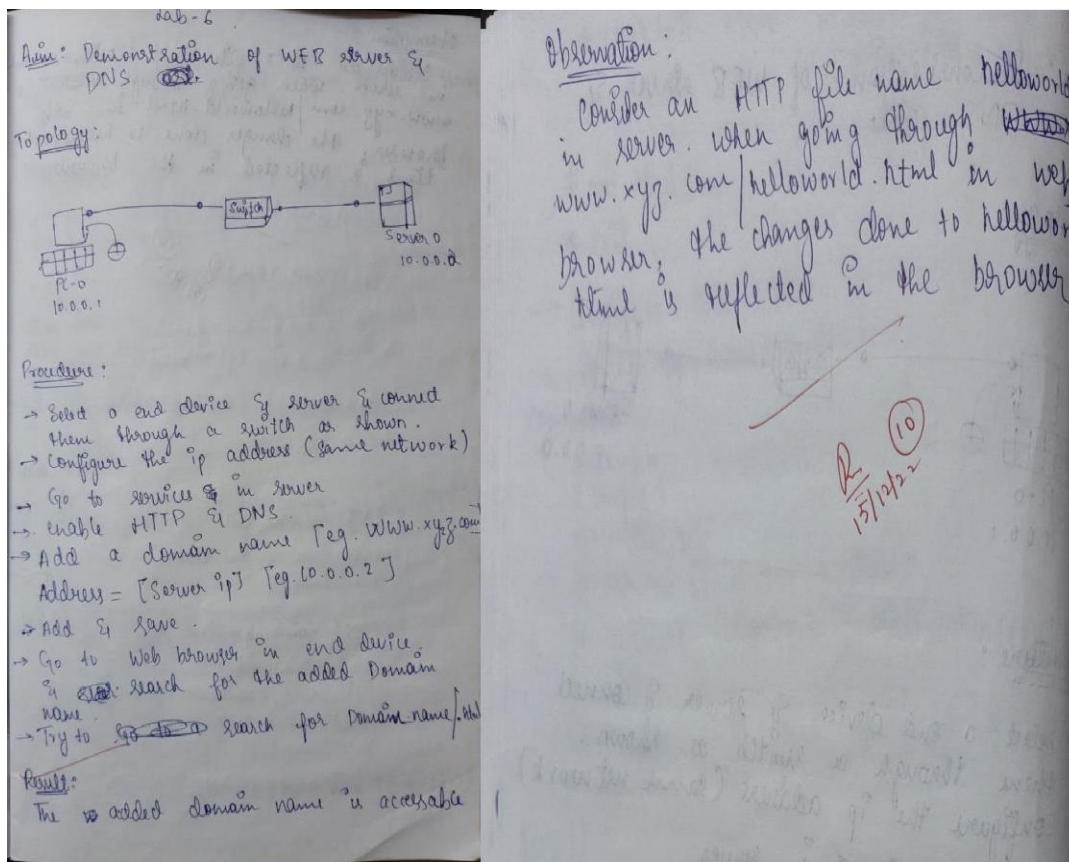 Lab-6
Aim: Demonstration of WEB server &
DNS
Topology:
Switch
Server 0
10.0.0.2
PC-0
10.0.0.1
Procedure:
→ Select a end device & server & connect
them through a switch as shown.
→ Configure the ip address (same network)
→ Go to services in server
→ enable HTTP & DNS.
→ Add a domain name [eg. www.xyz.com
Address = [Server ip] [eg. 10.0.0.2]
→ Add & save.
→ Go to Web browser in end device.
& search for the added Domain
name.
→ Try to search for Domain name/.html
Result:
The added domain name is accessable
Observation:
Consider an HTTP file name helloworld
in server. When going through
www.xyz.com/helloworld.html in web
browser, the changes done to hellowor
html is reflected in the browser
10
15/12/22